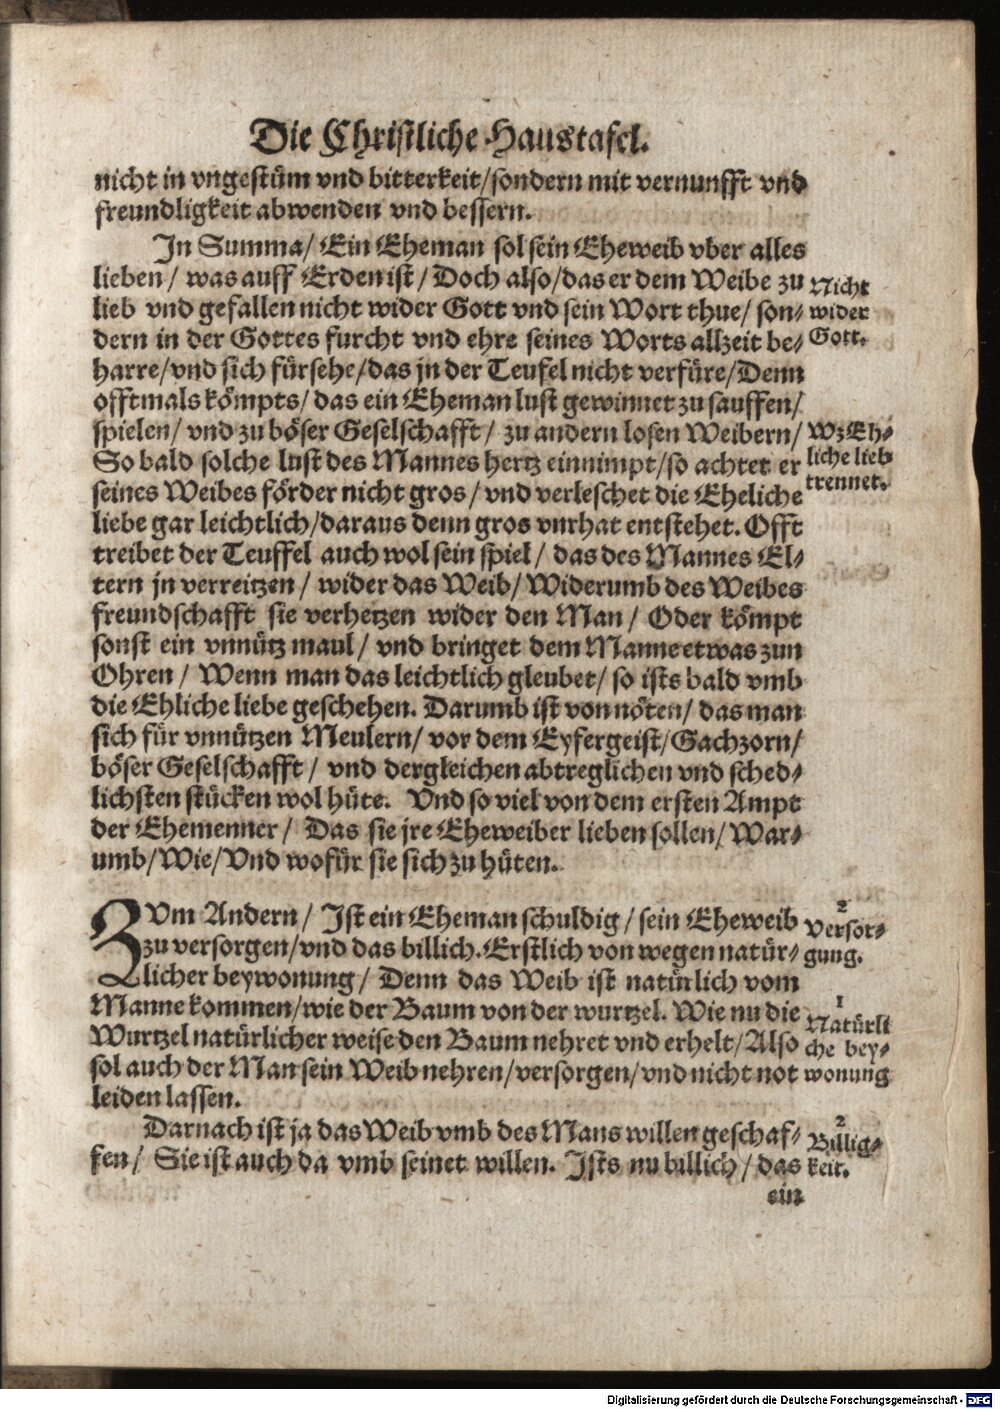 Die Christliche Haustafel.
nicht in vngestüm vnd bitterkeit/sondern mit vernunfft vnd
freundligkeit abwenden vnd bessern.
In Summa/ Ein Eheman sol sein Eheweib vber alles
lieben/ was auff Erden ist/ Doch also/das er dem Weibe zu
lieb vnd gefallen nicht wider Gott vnd sein Wort thue/ son-
dern in der Gottes furcht vnd ehre seines Worts allzeit be-
harre/vnd sich fürsehe/das jn der Teufel nicht verfüre/Denn
offtmals kömpts/ das ein Eheman lust gewinnet zu sauffen/
spielen/ vnd zu böser Geselschafft/ zu andern losen Weibern/
So bald solche lust des Mannes hertz einnimpt/so achtet er
seines Weibes förder nicht gros/ vnd verleschet die Eheliche
liebe gar leichtlich/daraus denn gros vnrhat entstehet. Offt
treibet der Teuffel auch wol sein spiel/ das des Mannes El-
tern jn verreitzen/ wider das Weib/ Widerumb des Weibes
freundschafft sie verhetzen wider den Man/ Oder kömpt
sonst ein vnnütz maul/ vnd bringet dem Manne etwas zun
Ohren/ Wenn man das leichtlich gleubet/ so ists bald vmb
die Ehliche liebe geschehen. Darumb ist von nöten/ das man
sich für vnnützen Meulern/ vor dem Eyfergeist/ Gachzorn/
böser Geselschafft/ vnd dergleichen abtreglichen vnd sched-
lichsten stücken wol hüte. Vnd so viel von dem ersten Ampt
der Ehemenner/ Das sie jre Eheweiber lieben sollen/ War-
umb/Wie/Vnd wofür sie sich zu hüten.
Nicht
wider
Gott.
Wz Eh-
liche lieb
trennet.
ZVm Andern/ Ist ein Eheman schuldig/ sein Eheweib
zu versorgen/vnd das billich. Erstlich von wegen natür-
licher beywonung/ Denn das Weib ist natürlich vom
Manne kommen/wie der Baum von der wurtzel. Wie nu die
Wurtzel natürlicher weise den Baum nehret vnd erhelt/Also
sol auch der Man sein Weib nehren/versorgen/vnd nicht not
leiden lassen.
Darnach ist ja das Weib vmb des Mans willen geschaf-
fen/ Sie ist auch da vmb seinet willen. Ists nu billich/ das
ein
2
Versor-
gung.
1
Natürli
che bey-
wonung
2
Billig-
keit.
Digitalisierung gefördert durch die Deutsche Forschungsgemeinschaft - DFG